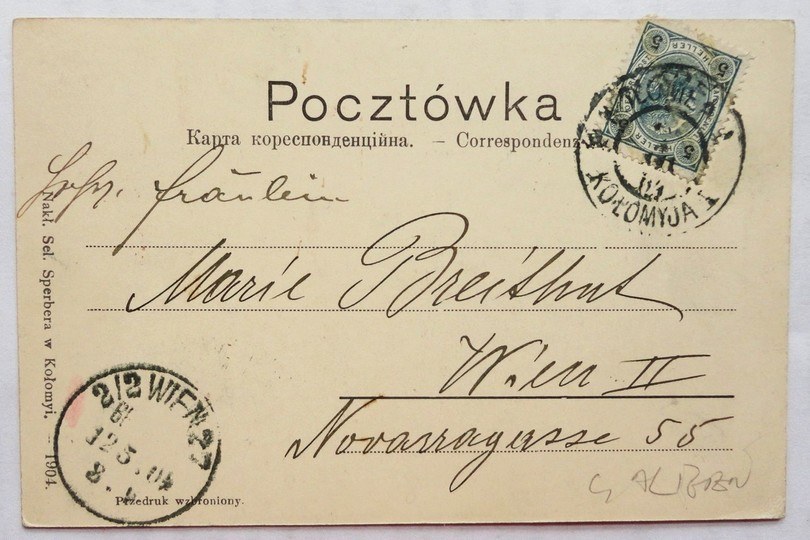 Pocztówka
Карта кореспонденційна. – Correspondenz
5 HELLER 5
KOŁOMYJA
fräulein
Marie Breithut
Wien II
Novarragasse 55
Nakł. Sel. Sperbera w Kołomyi. – 1904.
2/2 WIEN
12 5 04
8
Przedruk wzbroniony.